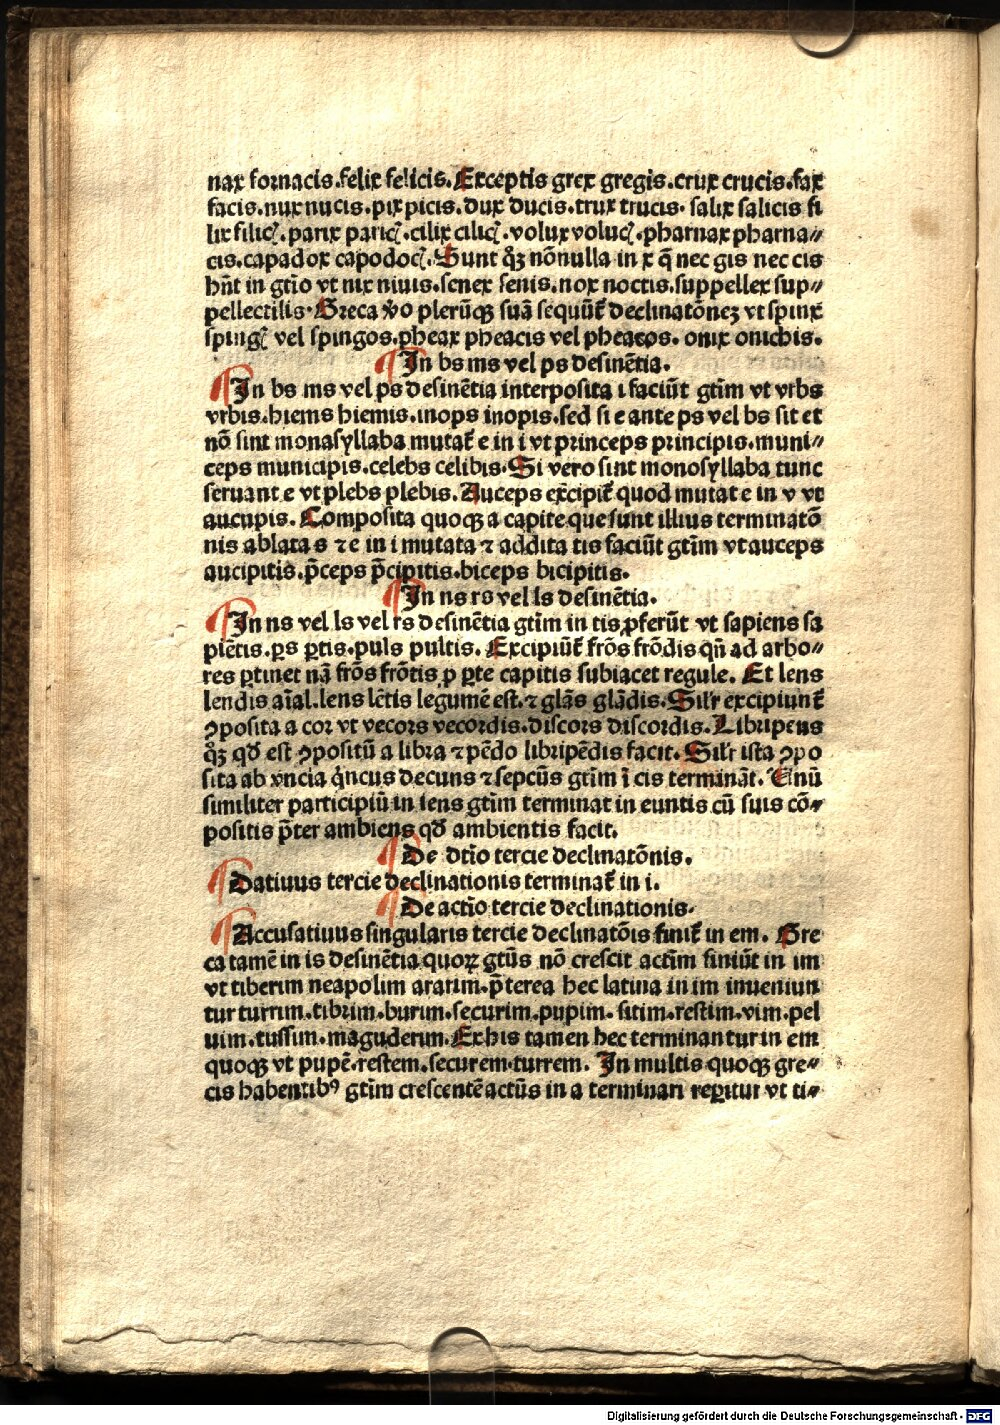 nax fornacis.felix felicis.Exceptis grex gregis.crux crucis.fax
facis.nux nucis.pix picis.dux ducis.trux trucis. salix salicis fi
lix filicꝭ.parix paricꝭ.cilix cilicꝭ.volux volucꝭ.pharnax pharna⸗
cis.capadox capodocꝭ.Sunt qͦꝫ nōnulla in x q̄ nec gis nec cis
hn̄t in gtīo vt nix niuis.senex senis.nox noctis.suppellex sup⸗
pellectilis.Greca v̄o plerūqꝫ suā sequūt᷑ declinatōneꝫ vt spinx
spingꝭ vel spingos.pheax pheacis vel pheacos. onix onichis.
In bs ms vel ps desinētia.
In bs ms vel ps desinētia interposita i faciūt gtīm vt vrbs
vrbis.hiems hiemis.inops inopis.sed si e ante ps vel bs sit et
nō sint monasyllaba mutat᷑ e in i vt princeps principis.muni⸗
ceps municipis.celebs celibis.Si vero sint monosyllaba tunc
seruant e vt plebs plebis. Auceps excipit᷑ quod mutat e in v vt
aucupis. Composita quoqꝫ a capite que sunt illius terminatō
nis ablata s ⁊ e in i mutata ⁊ addita tis faciūt gtīm vt auceps
aucipitis.p̄ceps p̄cipitis.biceps bicipitis.
In ns rs vel ls desinētia.
In ns vel ls vel rs desinētia gtīm in tis ꝓferūt vt sapiens sa
piētis.ꝑs ꝑtis.puls pultis. Excipiūt᷑ frōs frōdis qn̄ ad arbo⸗
res ꝑtinet nā frōs frōtis ꝓ ꝑte capitis subiacet regule. Et lens
lendis aīal.lens lētis legumē est.⁊ glās glādis.Sil'r excipiunt᷑
ꝯposita a cor vt vecors vecordis.discors discordis.Libripens
qͦꝫ qđ est ꝯpositū a libra ⁊ pēdo libripēdis facit. Sil'r ista ꝯpo
sita ab vncia q̇ncus decuns ⁊ sepcūs gtīm ī cis termināt. Unū
similiter participiū in iens gtīm terminat in euntis cū suis cō⸗
positis p̄ter ambiens qđ ambientis facit.
De dtīo tercie declinatōnis.
Datiuus tercie declinationis terminat᷑ in i.
De actīo tercie declinationis.
Accusatiuus singularis tercie declinatōis finit᷑ in em. Gre
ca tamē in is desinētia quoꝝ gtūs nō crescit actīm finiūt in im
vt tiberim neapolim ararim.p̄terea hec latina in im inueniun
tur turrim.tibrim.burim.securim.pupim.sitim.restim.vim.pel
uim.tussim.maguderim.Ex his tamen hec terminantur in em
quoqꝫ vt pupē.restem.securem.turrem. In multis quoqꝫ gre⸗
cis habentibꝰ gtīm crescentē actūs in a terminari reꝑitur vt ti⸗
Digitalisierung gefördert durch die Deutsche Forschungsgemeinschaft - DFG